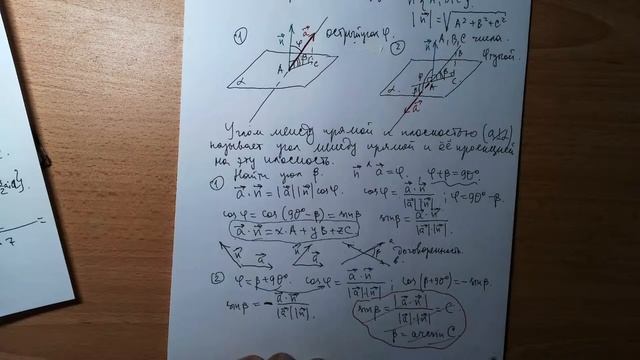 |n⃗| = √A² + B² + C²
A, B, C числа.
① острый угол φ.
② φ тупой.
n⃗ a⃗ φ β A C α
n⃗ φ β B A C α a⃗
Углом между прямой и плоскостью
называет угол между прямой и её проекцией
на эту плоскость.
Найти угол β. n⃗ ^ a⃗ = φ. φ+β=90°.
① a⃗·n⃗ = |a⃗||n⃗| cosφ. cosφ = a⃗·n⃗ / |a⃗||n⃗| ; φ=90°-β.
cosφ = cos(90°-β) = sinβ sinβ = a⃗·n⃗ / |a⃗||n⃗|.
a⃗·n⃗ = x·A + yB + zC
n⃗ a⃗ n⃗ a⃗ β договоренность.
② φ=β+90°. cosφ = a⃗·n⃗ / |a⃗|·|n⃗| ; cos(β+90°) = -sinβ
sinβ = - a⃗·n⃗ / |a⃗||n⃗|. sinβ = |a⃗·n⃗| / |a⃗|·|n⃗| = C
β = arcsin C